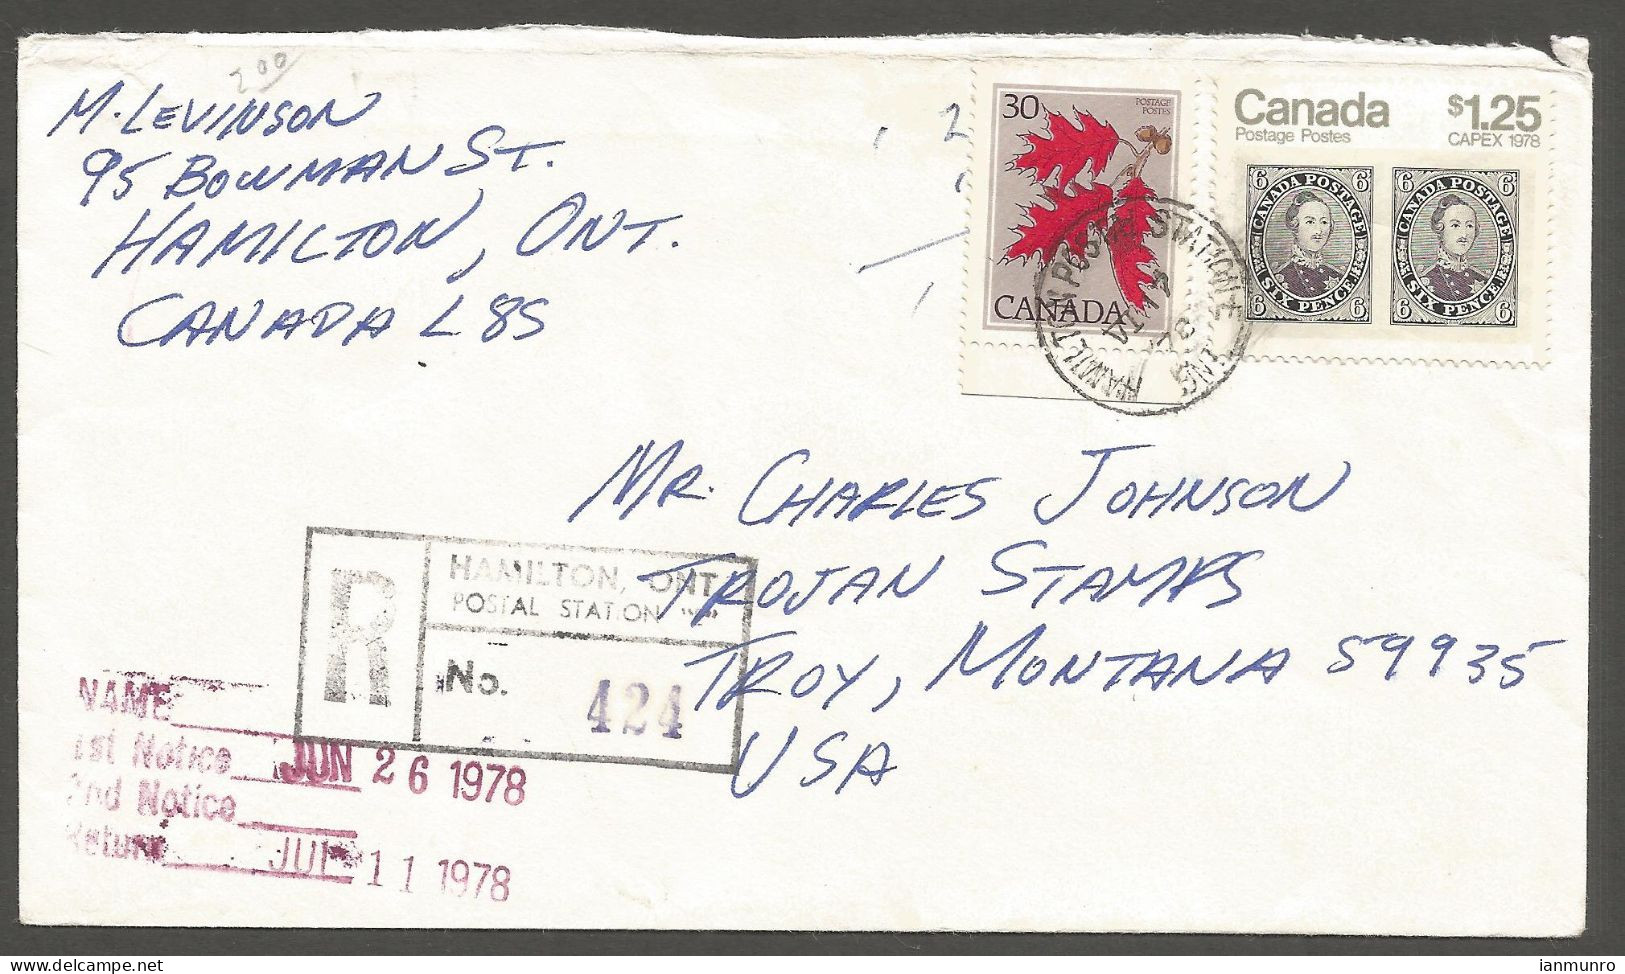 200
M. LEVINSON
95 BOWMAN ST.
HAMILTON, ONT.
CANADA L8S
30
POSTAGE
POSTES
CANADA
Canada $1.25
Postage Postes CAPEX 1978
6 CANADA POSTAGE 6
6 SIX PENCE 6
6 CANADA POSTAGE 6
6 SIX PENCE 6
HAMILTON POSTAL STATION ONT.
MR. CHARLES JOHNSON
TROJAN STAMPS
TROY, MONTANA 59935
USA
R
HAMILTON, ONT.
POSTAL STATION
No. 424
NAME
1st Notice JUN 26 1978
2nd Notice
Return JUL 11 1978
delcampe.net
ianmunro